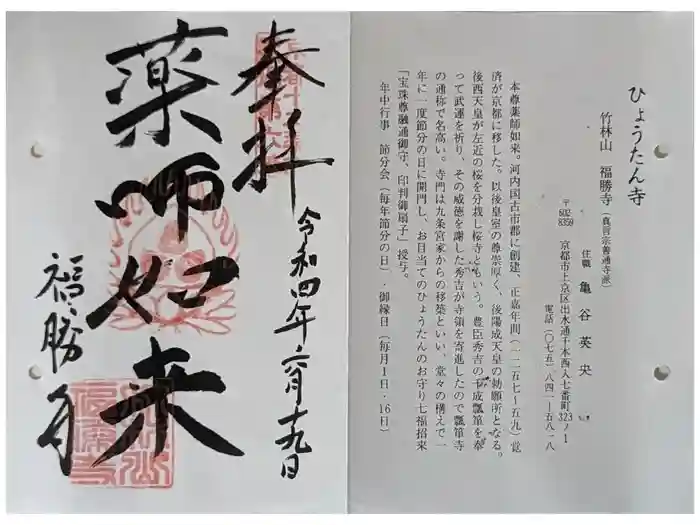 奉拝
薬師如来
令和四年六月十九日
福勝寺
ひょうたん寺
竹林山 福勝寺(真言宗善通寺派)
住職 亀谷英央
〒602-8359 京都市上京区出水通千本西入七番町323ノ1
電話(〇七五)八四一ー五八一八
本尊薬師如来。河内国古市郡に創建、正嘉年間(一二五七〜五九)覚
済が京都に移した。以後皇室の尊崇厚く、後陽成天皇の勅願所となる。
後西天皇が左近の桜を分栽し桜寺ともいう。豊臣秀吉の千成瓢箪を奉
って武運を祈り、その威徳を謝した秀吉が寺領を寄進したので瓢箪寺
の通称で名高い。寺門は九条宮家からの移築といい、堂々の構えで一
年に一度節分の日に開門し、お目当てのひょうたんのお守り七福招来
「宝珠尊融通御守、印判御扇子」授与。
年中行事 節分会(毎年節分の日)・御縁日(毎月1日・16日)